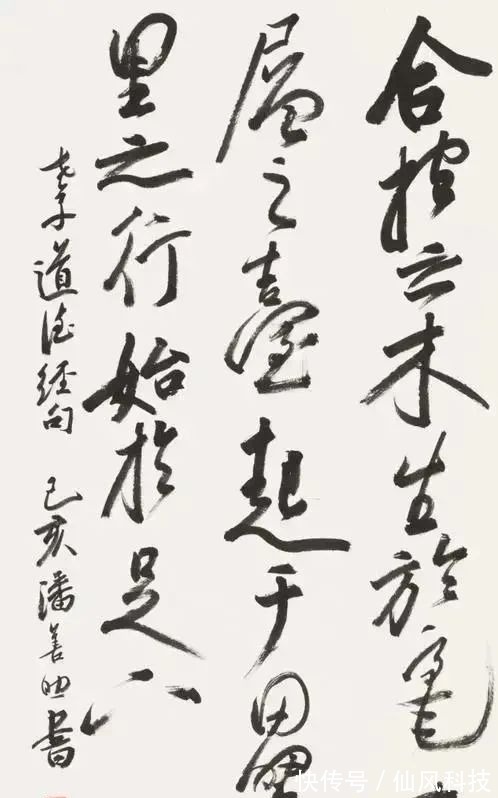 合抱之木生於毫
層之臺起于
里之行始於足下
老子道德經句 己亥潘善助書
快传号 / 仙风科技